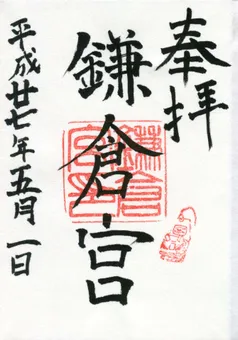 奉拝
鎌倉宮
平成廿七年五月一日